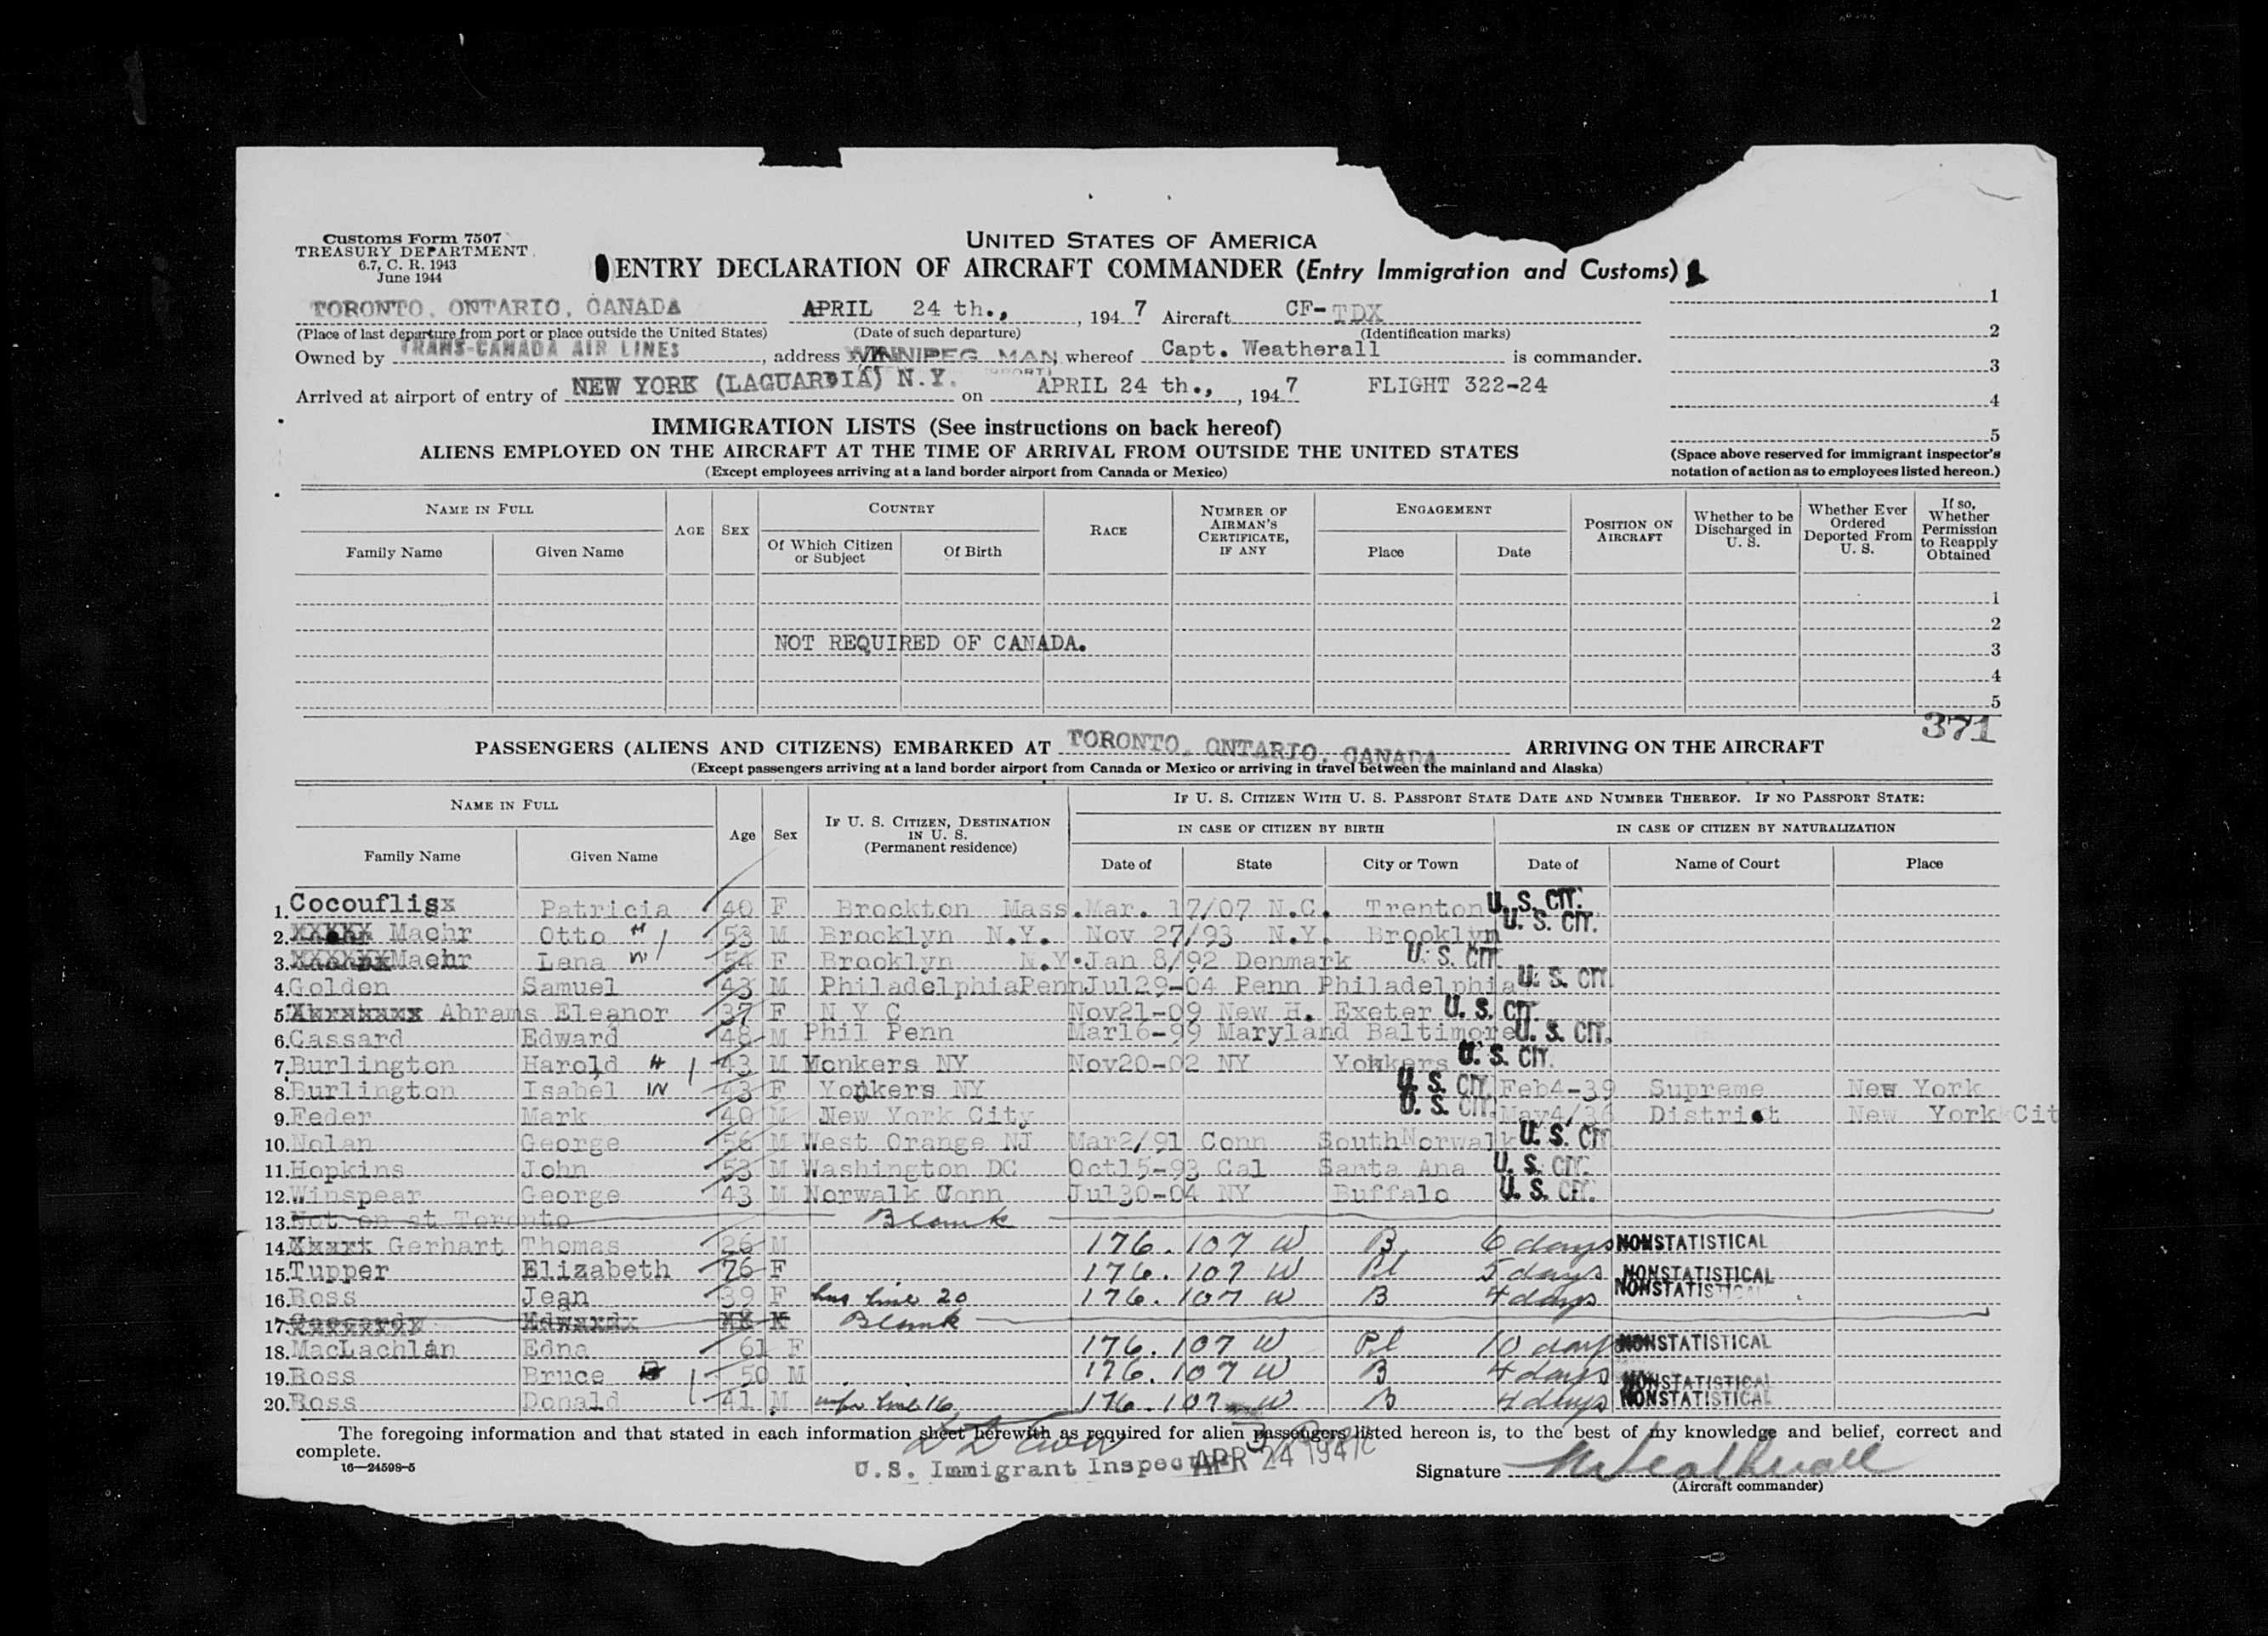 Customs Form 7507
TREASURY DEPARTMENT
6.7, C. R. 1943
June 1944
UNITED STATES OF AMERICA
ENTRY DECLARATION OF AIRCRAFT COMMANDER (Entry Immigration and Customs)
TORONTO, ONTARIO, CANADA APRIL 24 th., , 194 7 Aircraft CF-TDX 1
(Place of last departure from port or place outside the United States) (Date of such departure) (Identification marks) 2
Owned by TRANS-CANADA AIR LINES, address WINNIPEG MAN, whereof Capt. Weatherall is commander. 3
Arrived at airport of entry of NEW YORK (LAGUARDIA) N.Y. on APRIL 24 th., , 194 7 FLIGHT 322-24 4
5
IMMIGRATION LISTS (See instructions on back hereof)
ALIENS EMPLOYED ON THE AIRCRAFT AT THE TIME OF ARRIVAL FROM OUTSIDE THE UNITED STATES
(Except employees arriving at a land border airport from Canada or Mexico)
(Space above reserved for immigrant inspector's
notation of action as to employees listed hereon.)
NAME IN FULL AGE SEX COUNTRY RACE NUMBER OF AIRMAN'S CERTIFICATE, IF ANY ENGAGEMENT POSITION ON AIRCRAFT Whether to be Discharged in U. S. Whether Ever Ordered Deported From U. S. If so, Whether Permission to Reapply Obtained
Family Name Given Name Of Which Citizen or Subject Of Birth Place Date
1
2
NOT REQUIRED OF CANADA. 3
4
5
371
PASSENGERS (ALIENS AND CITIZENS) EMBARKED AT TORONTO, ONTARIO, CANADA ARRIVING ON THE AIRCRAFT
(Except passengers arriving at a land border airport from Canada or Mexico or arriving in travel between the mainland and Alaska)
NAME IN FULL Age Sex IF U. S. CITIZEN, DESTINATION IN U. S. (Permanent residence) IF U. S. CITIZEN WITH U. S. PASSPORT STATE DATE AND NUMBER THEREOF. IF NO PASSPORT STATE:
IN CASE OF CITIZEN BY BIRTH IN CASE OF CITIZEN BY NATURALIZATION
Family Name Given Name Date of State City or Town Date of Name of Court Place
1. Cocouflisx Patricia 40 F Brockton Mass. Mar. 17/07 N.C. Trenton U. S. CIT.
2. XXXXX Maehr Otto H 53 M Brooklyn N.Y. Nov 27/93 N.Y. Brooklyn U. S. CIT.
3. XXXXXX Maehr Lena W 54 F Brooklyn N.Y. Jan 8/92 Denmark U. S. CIT.
4. Golden Samuel 43 M Philadelphia Penn Jul29-04 Penn Philadelphia U. S. CIT.
5. Xxxxxxxx Abrams Eleanor 37 F N Y C Nov21-09 New H. Exeter U. S. CIT.
6. Cassard Edward 48 M Phil Penn Mar16-99 Maryland Baltimore U. S. CIT.
7. Burlington Harold H 43 M Yonkers NY Nov20-02 NY Yonkers U. S. CIT.
8. Burlington Isabel W 43 F Yonkers NY U. S. CIT. Feb4-39 Supreme New York
9. Feder Mark 40 M New York City U. S. CIT. May4/36 District New York Cit
10. Nolan George 56 M West Orange NJ Mar2/91 Conn South Norwalk U. S. CIT.
11. Hopkins John 53 M Washington DC Oct15-93 Cal Santa Ana U. S. CIT.
12. Winspear George 43 M Norwalk Conn Jul30-04 NY Buffalo U. S. CIT.
13. Not on at Toronto Blank
14. Xxxxx Gerhart Thomas 26 M 176. 107 W B 6 days NONSTATISTICAL
15. Tupper Elizabeth 76 F 176. 107 W Bl 5 days NONSTATISTICAL
16. Ross Jean 39 F hus line 20 176. 107 W B 4 days NONSTATISTICAL
17. Edwardx Blank
18. MacLachlan Edna 61 F 176. 107 W Bl 10 days NONSTATISTICAL
19. Ross Bruce 50 M 176. 107 W B 4 days NONSTATISTICAL
20. Ross Donald 41 M wife line 16 176. 107 W B 4 days NONSTATISTICAL
The foregoing information and that stated in each information sheet herewith as required for alien passengers listed hereon is, to the best of my knowledge and belief, correct and
complete.
16—24598-5
U.S. Immigrant Inspector APR 24 1947 Signature Weatherall
(Aircraft commander)